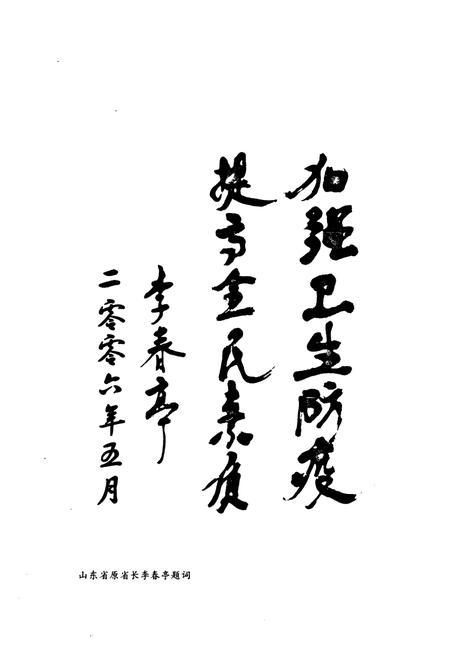 加强卫生防疫
提高全民素质
李春亭
二零零六年五月
山东省原省长李春亭题词